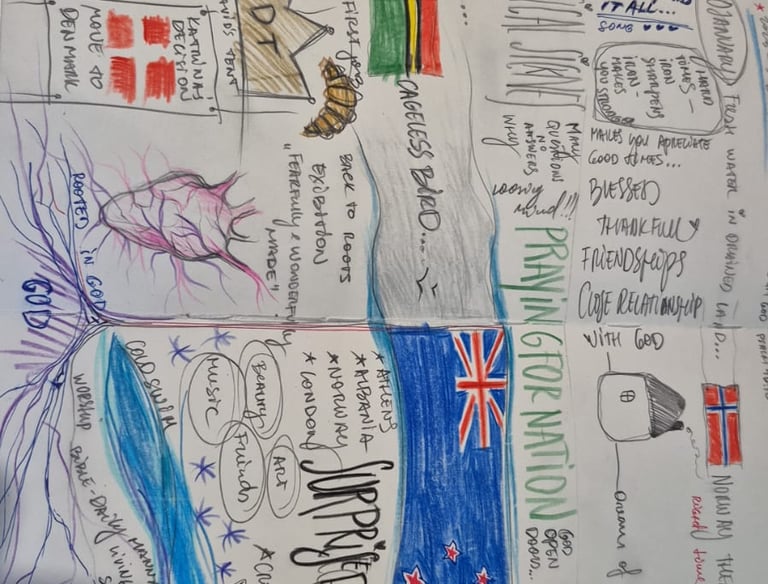 IT ALL...
SONG
JANUARY
HARD
TIMES -
IRON
SHARPENS
IRON -
MAKES
YOU STRONGER
MAKES YOU APRECIATE
GOOD TIMES...
BLESSED
THANKFULL
FRIENDSHIPS
CLOSE RELATIONSHIP
WITH GOD
FRESH WATER IN DRAINED LAND...
NORWAY THE
RIGHT TIME
DREAMS OF
MANY
QUESTIONS
NO
ANSWERS
WHY
LOOSING
MIND!!!
PRAYING FOR NATION
GOD
OPEN
DOORS...
CAGELESS BIRD...
BACK TO ROOTS
EXIBATION
"FEARFULLY & WONDERFULLY
MADE"
LATKINAS
DECISION
MOVE TO
DENMARK
ROOTED IN GOD
GOD
COLD SWIM
WORSHIP
BIBLE - DAILY MANNA
LIVING
MUSIC
BEAUTY
FRIENDS
ART
★ ATHENS
★ ALBANIA
★ NORWAY
★ LONDON
SURPRISE